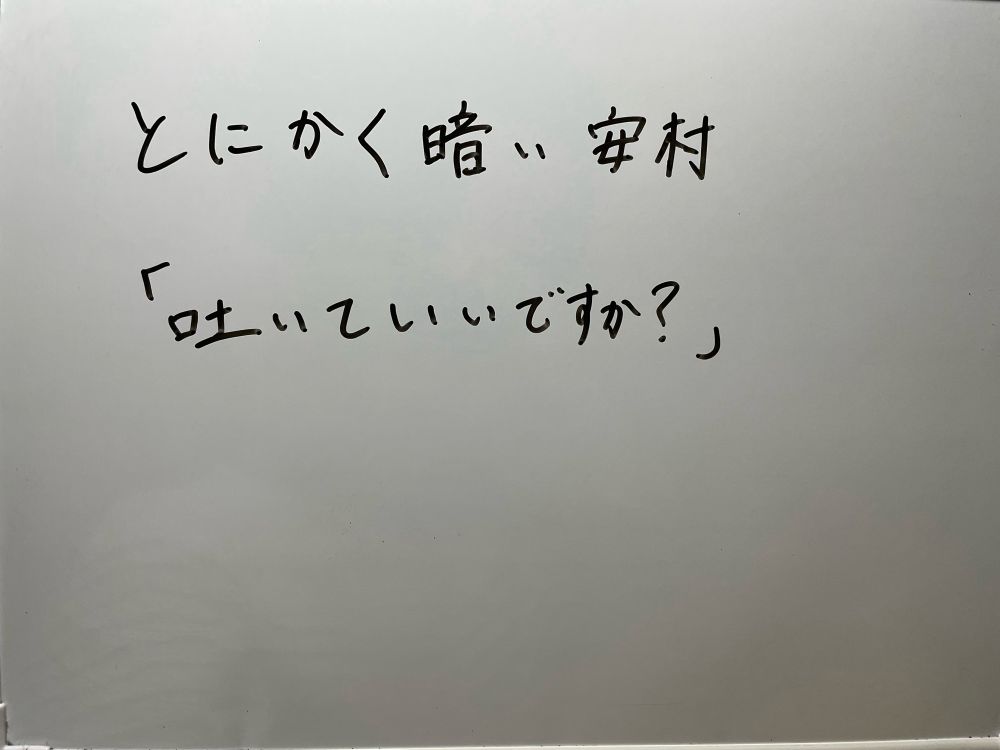 とにかく暗い安村
「吐いていいですか?」